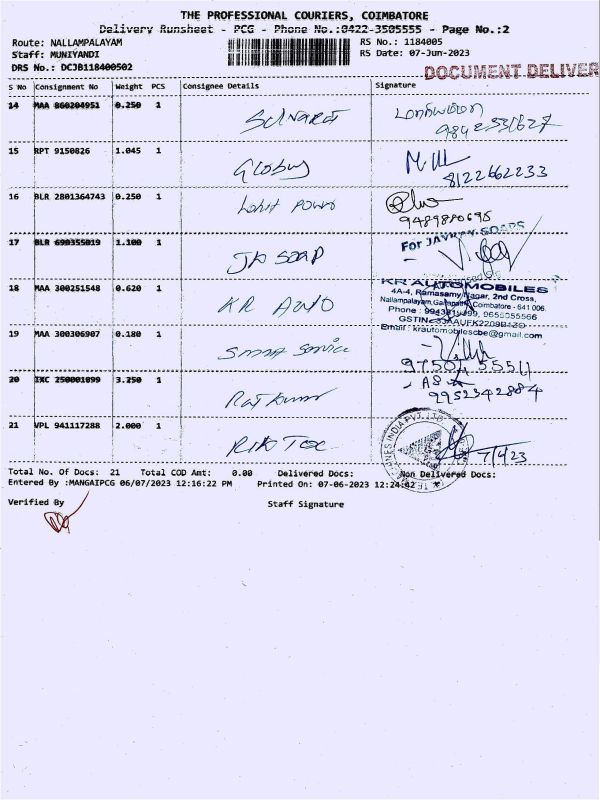 THE PROFESSIONAL COURIERS, COIMBATORE
Delivery Runsheet - PCG - Phone No.:0422-3505555 - Page No.:2
Route: NALLAMPALAYAM RS No.: 1184005
Staff: MUNIYANDI RS Date: 07-Jun-2023
DRS No.: DCJB118400502
DOCUMENT DELIVER
S No Consignment No Weight PCS Consignee Details Signature
14 MAA 860204951 0.250 1
15 RPT 9150826 1.045 1 Globus
8122662233
16 BLR 2801364743 0.250 1 Lohit power
9489880695
17 BLR 690355019 1.100 1 JK SOAP For
18 MAA 300251548 0.620 1 KR Auto KR AUTOMOBILES
4A-4, Ramasamy Nagar, 2nd Cross,
Nallampalayam, Coimbatore - 641 006.
Phone :
Email : krautomobilescbe@gmail.com
19 MAA 300306907 0.180 1 Smart Service
97504 55511
20 IXC 250001099 3.250 1 Raj Kumar
9952342884
21 VPL 941117288 2.000 1
Total No. Of Docs: 21 Total COD Amt: 0.00 Delivered Docs: Non Delivered Docs:
Entered By :MANGAIPCG 06/07/2023 12:16:22 PM Printed On: 07-06-2023 12:24:42
Verified By Staff Signature